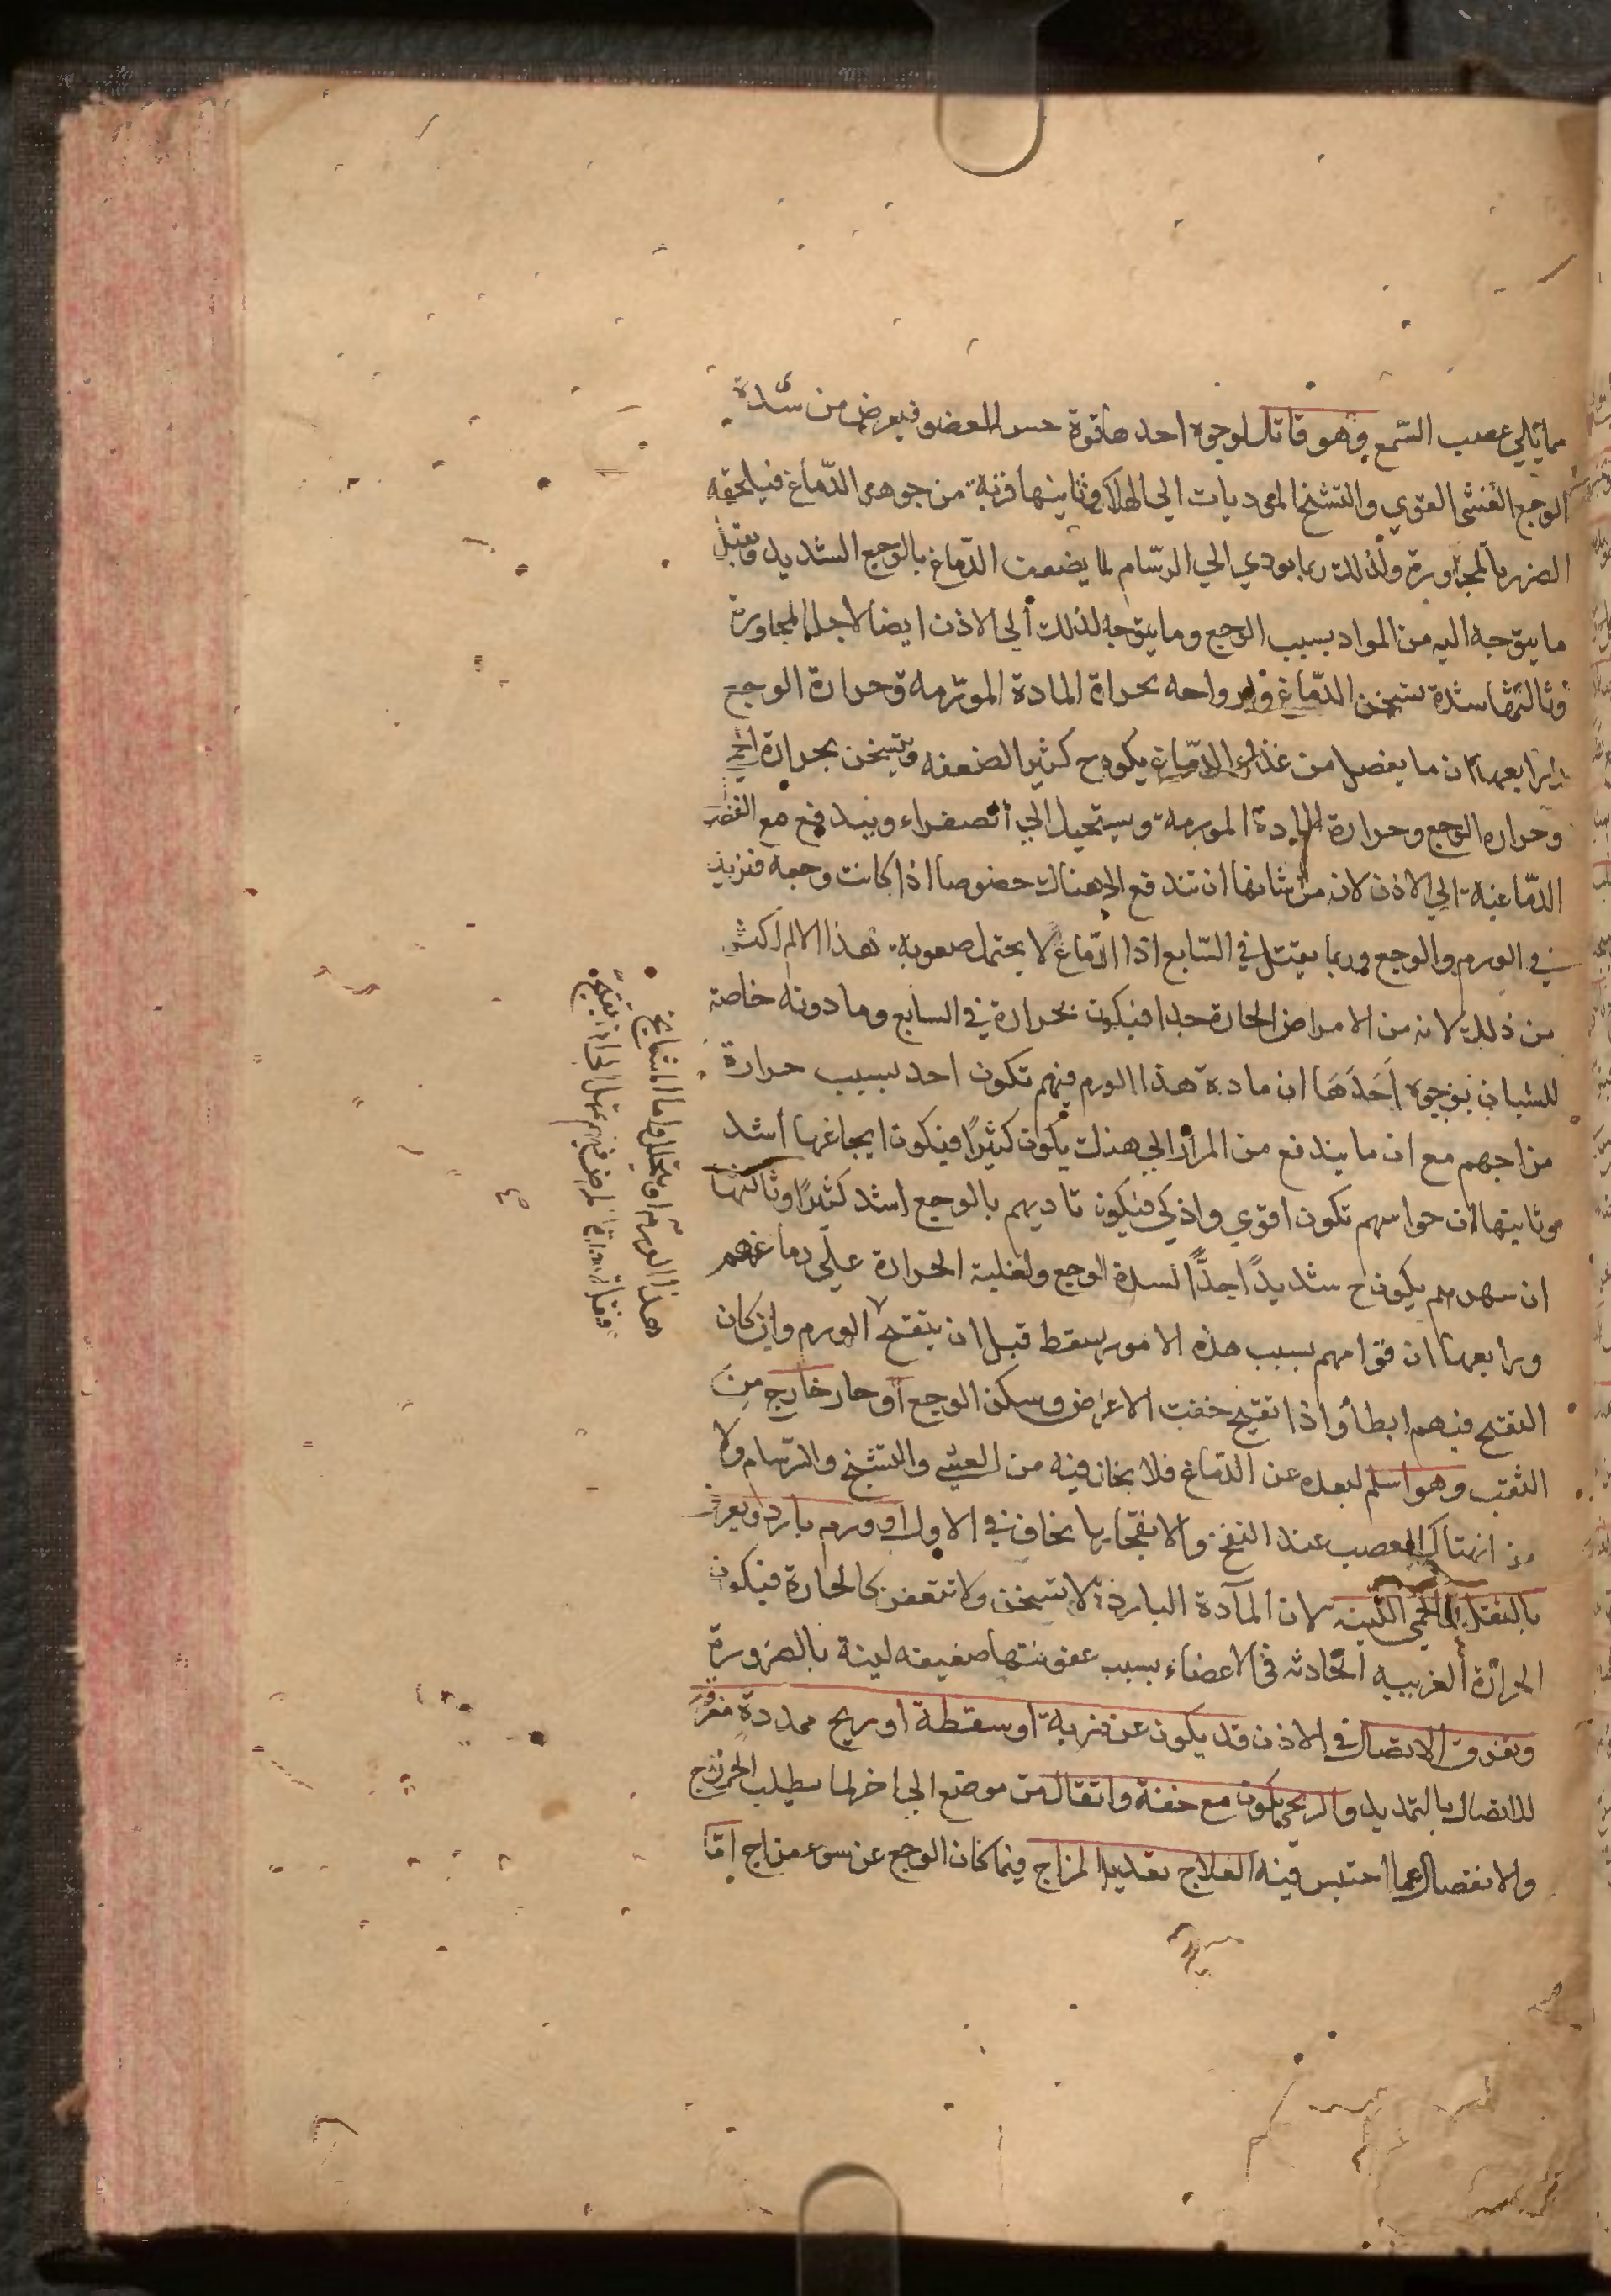 مما يلي عصب السمع وهو قاتل لوجوه احدها قوة حس العضو فيعرض من شدة
الوجع الغشى القوي والتشنج الموديات الي الهلاك وثانيها قربة من جوهر الدماغ فيلحقه
الضرر بالمجاورة ولذلك ربما يودي الي السرسام لما يضعف الدماغ بالوجع الشديد وقبل
ما يتوجه اليه من المواد بسبب الوجع وما يتوجه لذلك الي الاذن ايضا لاجل المجاورة
وثالثها شدة تسخن الدماغ وارواحه بحرارة المادة المورمه وحرارة الوجع
ورابعها ان ما يفصل من غذاء الدماغ يكون ح كثيرا لضعفه ويتسخن بحرارة الحمى
وحراره الوجع وحرارة المادة المورمة ويستحيل الي الصفراء ويندفع مع الفضول
الدماغية الي الاذن لان من شانها ان تندفع الي هناك خصوصا اذا كانت وجعه فتزيد
في الورم والوجع وربما يقتل في السابع اذا الدماغ لا يحتمل صعوبة هذا الالم اكثر
من ذلك لانه من الامراض الحارة جدا فيكون بحرارة في السابع وما دونه خاصة
للشبان بوجوه احدها ان مادة هذا الورم فيهم تكون احد لسبب حرارة
مزاجهم مع ان ما يندفع من المرار الي هناك يكون كثيرا فيكون ايجاعها اشد
وثانيها ان حواسهم تكون اقوي واذكي فيكون تاديهم بالوجع اشد كثيرا وثالثها
ان سهرهم يكون ح شديدا جدا لشدة الوجع ولغلبة الحرارة علي دماغهم
ورابعها ان قواهم بسبب هذه الامور يسقط قبل ان يتقيح الورم وان كان
التقيح فيهم ابطأ واذا تقيح خفت الاعراض وسكن الوجع او حار خارج من
الثقب وهو اسلم لبعده عن الدماغ فلا يخاف فيه من الغشي والتشنج والسرسام ولا
من انهتاك العصب عند النفخ والانفجار ما يخاف في الاول او ورم بارد ويعرف
بالثقل والحمى اللينه لان المادة الباردة لا تسخن ولا تتعفن كالحارة فيكون
الحرارة الغريبيه الحادثه في الاعضاء بسبب عفونتها ضعيفه لينة بالضرورة
وتفرق الاتصال في الاذن قد يكون عن ضربة او سقطة او ريح ممددة مفرق
للاتصال بالتمديد والريحي يكون مع خفة وانتقال من موضع الي اخر لما يطلب الخروج
والانفصال عما احتبس فيه العلاج تعديل المزاج فيما كان الوجع عن سوء مزاج اما
هذا الورم او يتحلل واما المشايخ